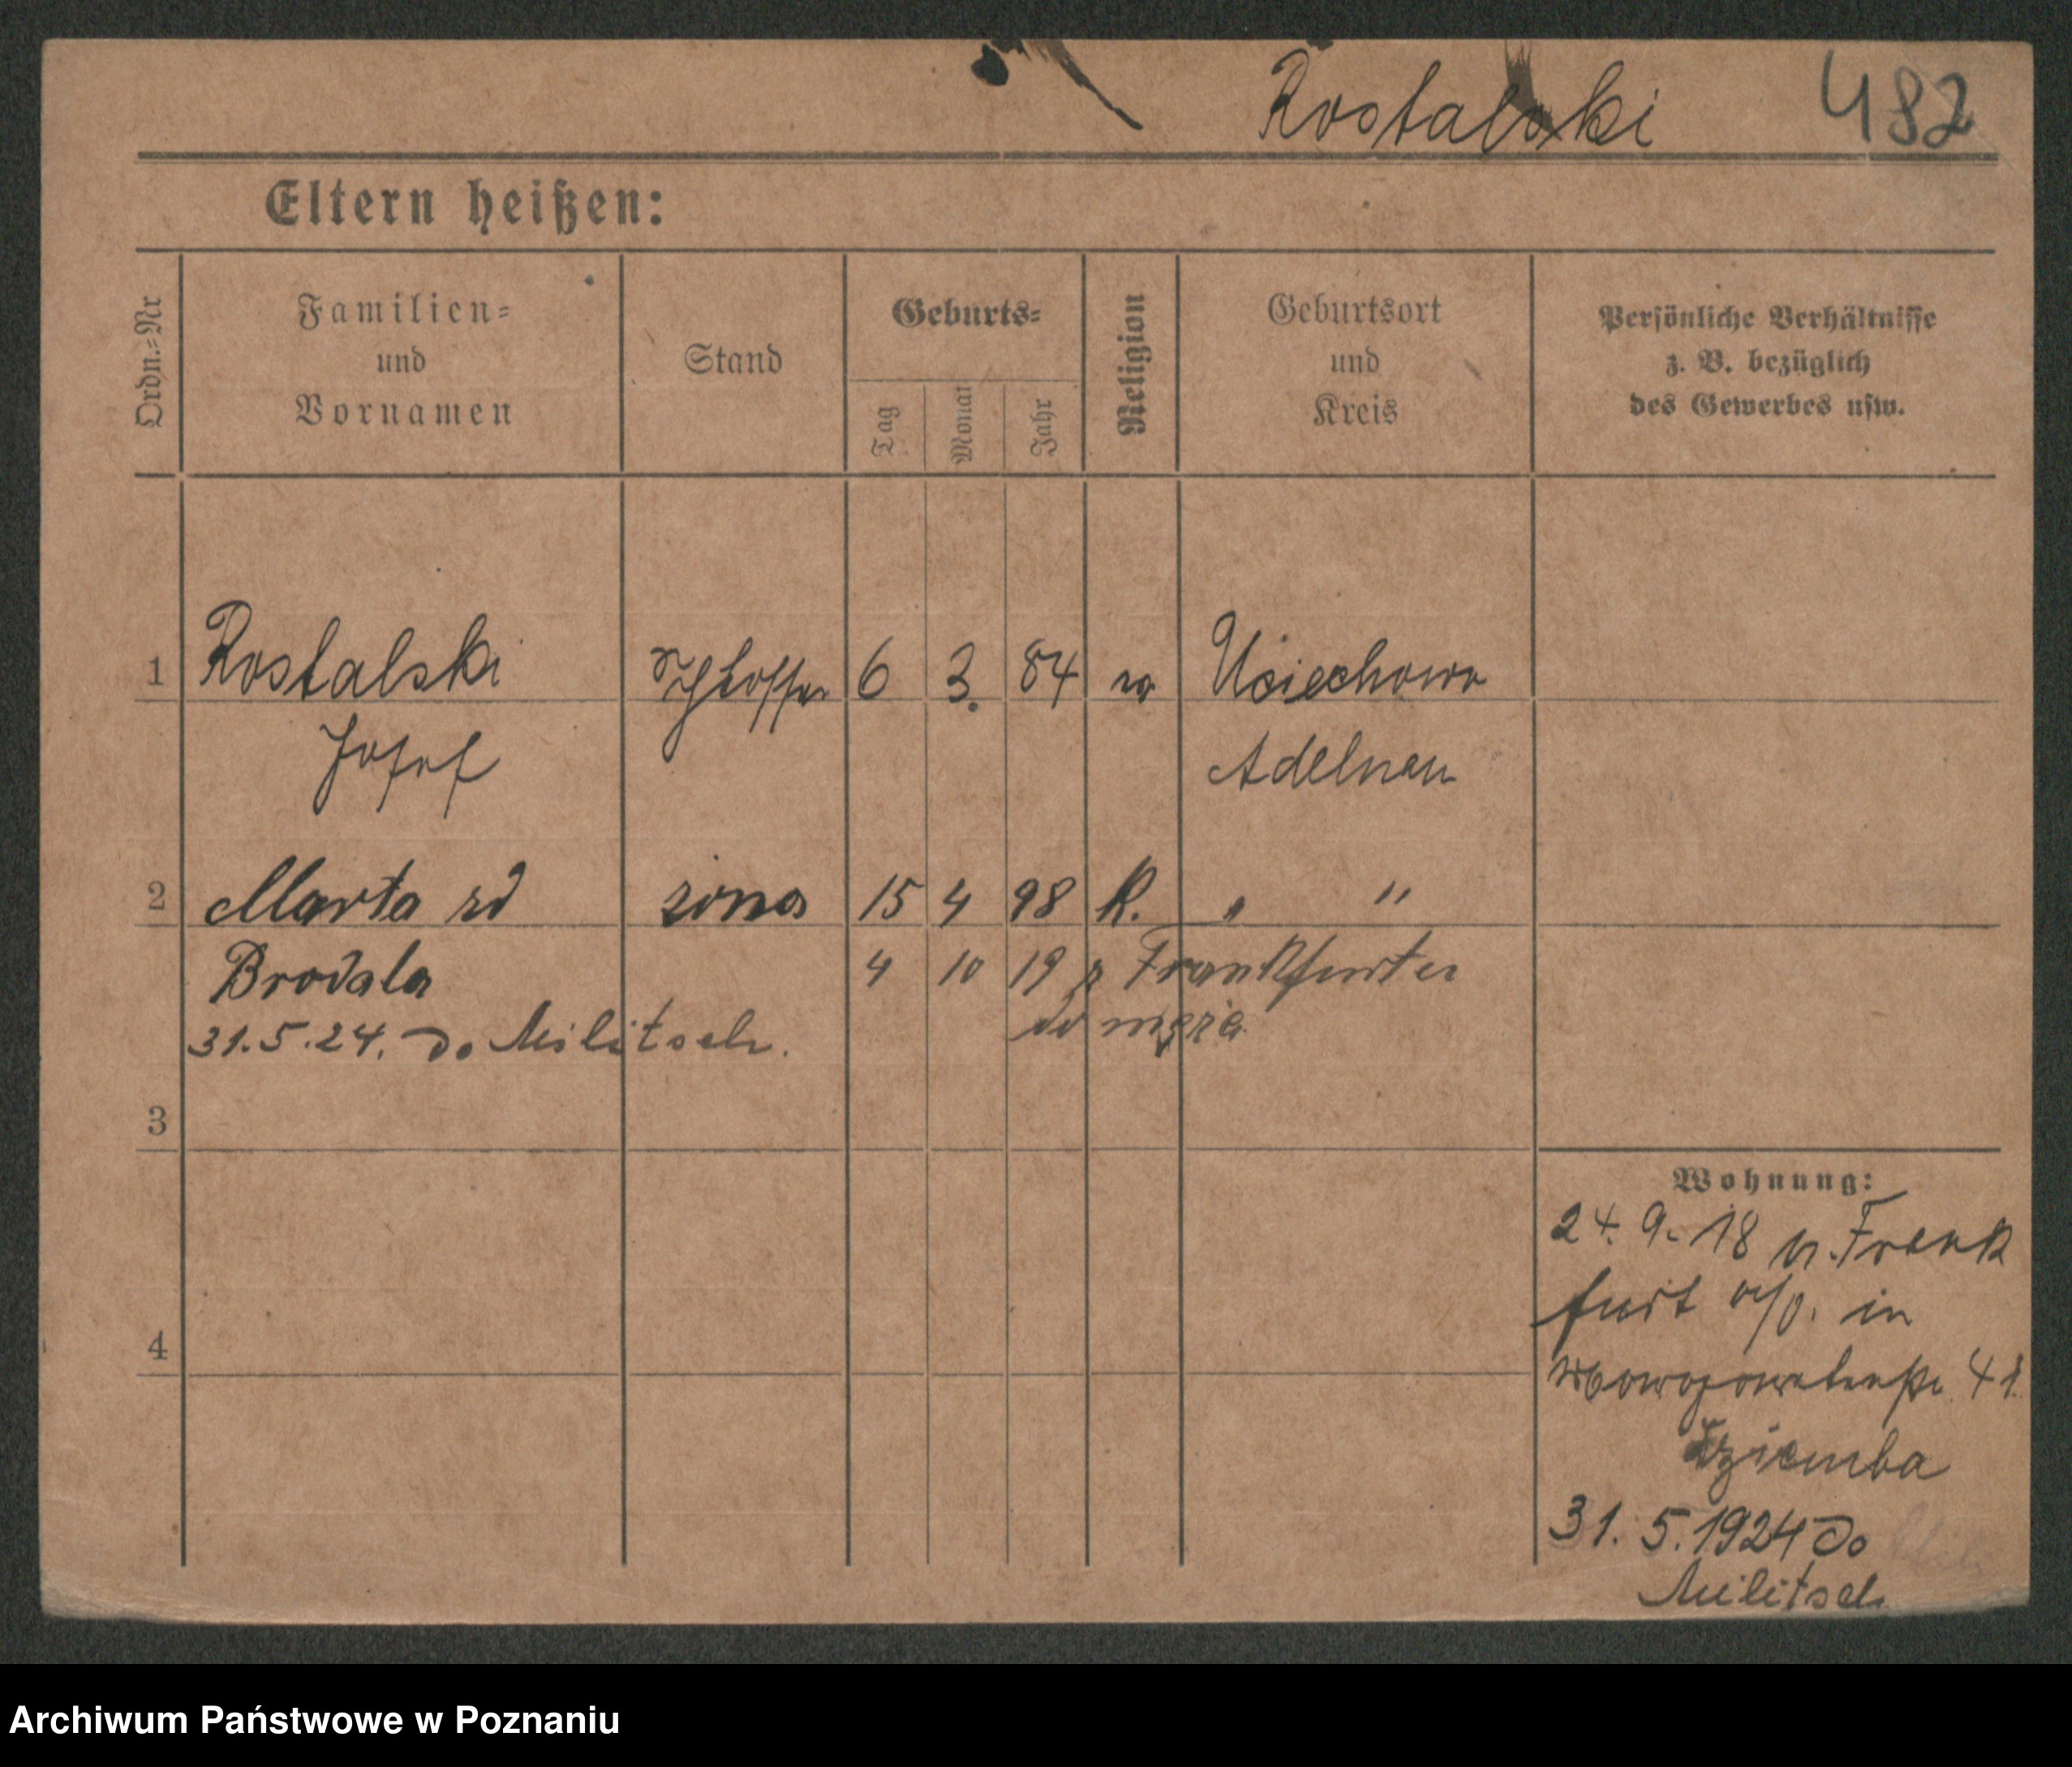 Rostalski 482
Eltern heißen:
Ordn.-Nr
Familien-
und
Vornamen
Stand
Geburts-
Tag
Monat
Jahr
Religion
Geburtsort
und
Kreis
Persönliche Verhältnisse
z. B. bezüglich
des Gewerbes usw.
1 Rostalski Schlosser 6 3. 84 Uciechowo
Josef Adelnau
2 Marta zd żona 15 4 98 K. " "
Brodala 4 10 19 z Frankfurter
do męża
31.5.24. do Militsch.
3
Wohnung:
24. 9. 18 v. Frank
furt a/O. in
4
41.
Dziemba
31. 5. 1924 do
Militsch
Archiwum Państwowe w Poznaniu